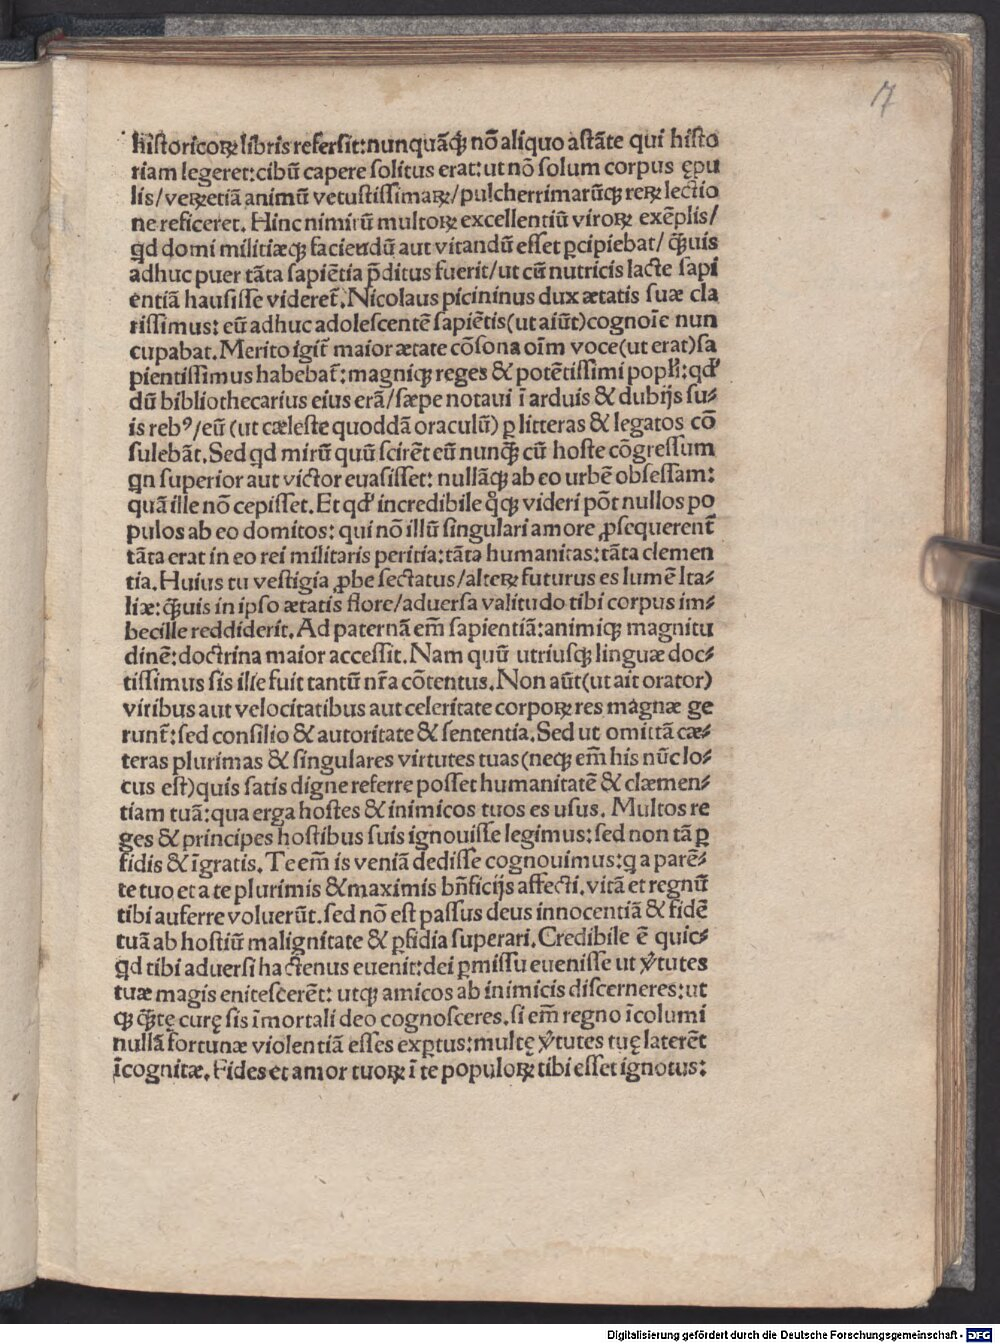 7
historicoꝝ libris refersit: nunquā q̃ nō aliquo astāte qui histo
riam legeret: cibū capere solitus erat: ut nō solum corpus ępu
lis/ veꝝ etiā animū vetustissimaꝝ/ pulcherrimarūq; reꝝ lectio
ne reficeret. Hinc nimirū multoꝝ excellentiū viroꝝ exēplis/
qd domi militiæq; faciendū aut vitandū esset ꝑcipiebat/ q̃uis
adhuc puer tāta sapiētia p̄ditus fuerit/ ut cū nutricis lacte sapi
entiā hausisse videret᷑. Nicolaus picininus dux ætatis suæ cla
rissimus: eū adhuc adolescentē sapiētis (ut aiūt) cognoīe nun
cupabat. Merito igit᷑ maior ætate cōsona oīm voce (ut erat) sa
pientissimus habebat᷑: magniq; reges & potētissimi popłi: qd'
dū bibliothecarius eius erā/ sæpe notaui ī arduis & dubijs su⸗
is rebꝰ/ eū (ut cæleste quoddā oraculū) ꝑ litteras & legatos cō
sulebāt. Sed qd mirū quū scirēt eū nunq̃ cū hoste cōgressum
qn superior aut victor euasisset: nullāq; ab eo urbē obsessam:
quā ille nō cepisset. Et qd' incredibile q̊q; videri pōt nullos po
pulos ab eo domitos: qui nō illū singulari amore ꝓsequerent᷑
tāta erat in eo rei militaris peritia: tāta humanitas: tāta clemen
tia. Huius tu vestigia ꝓbe sectatus/ alteꝝ futurus es lumē Ita⸗
liæ: q̃uis in ipso ætatis flore/ aduersa valitudo tibi corpus im⸗
becille reddiderit. Ad paternā em̄ sapientiā: animiq; magnitu
dinē: doctrina maior accessit. Nam quū utriusq; linguæ doc⸗
tissimus sis ille fuit tantū nr̄a cōtentus. Non aūt (ut ait orator)
viribus aut velocitatibus aut celeritate corpoꝝ res magnæ ge
runt᷑: sed consilio & autoritate & sententia. Sed ut omittā cæ⸗
teras plurimas & singulares virtutes tuas (neq; em̄ his nūc lo⸗
cus est) quis satis digne referre posset humanitatē & clæmen⸗
tiam tuā: qua erga hostes & inimicos tuos es usus. Multos re
ges & principes hostibus suis ignouisse legimus: sed non tā ꝑ
fidis & īgratis. Te em̄ is veniā dedisse cognouimus: q a parē⸗
te tuo et a te plurimis & maximis bn̄ficijs affecti. vitā et regnū
tibi auferre voluerūt. sed nō est passus deus innocentiā & fidē
tuā ab hostiū malignitate & ꝑfidia superari. Credibile ē quic⸗
qd tibi aduersi hactenus euenit: dei ꝑmissu euenisse ut v̓tutes
tuæ magis enitescerēt: utq; amicos ab inimicis discerneres: ut
q; q̃tę curę sis īmortali deo cognosceres. si em̄ regno īcolumi
nullā fortunæ violentiā esses exꝑtus: multę v̓tutes tuę laterēt
īcognitæ. Fides et amor tuoꝝ ī te populoꝝ tibi esset ignotus:
Digitalisierung gefördert durch die Deutsche Forschungsgemeinschaft - DFG